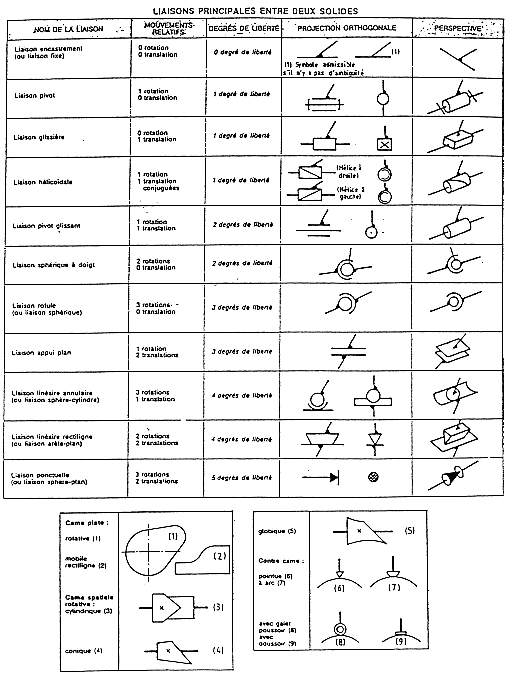 LIAISONS PRINCIPALES ENTRE DEUX SOLIDES
NOM DE LA LIAISON
MOUVEMENTS RELATIFS
DEGRÉS DE LIBERTÉ
PROJECTION ORTHOGONALE
PERSPECTIVE
Liaison encastrement
(ou liaison fixe)
0 rotation
0 translation
0 degré de liberté
(1)
(1) Symbole admissible
s'il n'y a pas d'ambiguité
Liaison pivot
1 rotation
0 translation
1 degré de liberté
Liaison glissière
0 rotation
1 translation
1 degré de liberté
Liaison hélicoïdale
1 rotation
1 translation
conjuguées
1 degré de liberté
(Hélice à
droite)
(Hélice à
gauche)
Liaison pivot glissant
1 rotation
1 translation
2 degrés de liberté
Liaison sphérique à doigt
2 rotations
0 translation
2 degrés de liberté
Liaison rotule
(ou liaison sphérique)
3 rotations
0 translation
3 degrés de liberté
Liaison appui plan
1 rotation
2 translations
3 degrés de liberté
Liaison linéaire annulaire
(ou liaison sphère-cylindre)
3 rotations
1 translation
4 degrés de liberté
Liaison linéaire rectiligne
(ou liaison arête-plan)
2 rotations
2 translations
4 degrés de liberté
Liaison ponctuelle
(ou liaison sphère-plan)
3 rotations
2 translations
5 degrés de liberté
Came plate :
rotative (1)
(1)
mobile
rectiligne (2)
(2)
Came spatiale
rotative :
cylindrique (3)
(3)
conique (4)
(4)
globique (5)
(5)
Contre came :
pointue (6)
à arc (7)
(6)
(7)
avec galet
poussoir (8)
avec
poussoir (9)
(8)
(9)